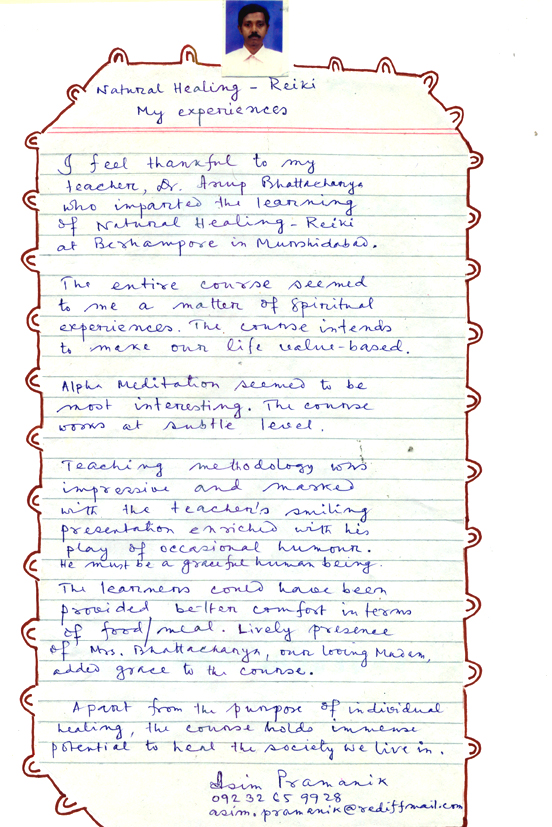 Natural Healing - Reiki
My experiences
I feel thankful to my
teacher, Dr. Anup Bhattacharya
who imparted the learning
of Natural Healing - Reiki
at Berhampore in Murshidabad.
The entire course seemed
to me a matter of Spiritual
experiences. The course intends
to make our life value-based.
Alpha Meditation seemed to be
most interesting. The course
works at subtle level.
Teaching methodology was
impressive and marked
with the teacher's smiling
presentation enriched with his
play of occasional humour.
He must be a graceful human being.
The learners could have been
provided better comfort in terms
of food/meal. Lively presence
of Mrs. Bhattacharya, our loving Madam,
added grace to the course.
Apart from the purpose of individual
healing, the course holds immense
potential to heal the society we live in.
Asim Pramanik
092 32 65 9928
asim.pramanik@rediffmail.com